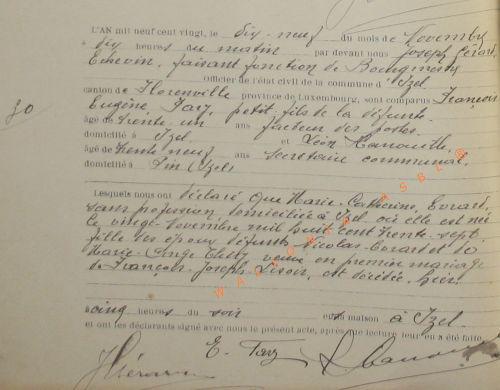 L'AN mil neuf cent vingt, le dix-neuf du mois de Novembre
dix heures du matin par devant nous Joseph Gérard,
Echevin, faisant fonction de Bourgmestre
Officier de l'état civil de la commune d'Izel
canton de Florenville province de Luxembourg, sont comparus François
Eugène petit fils de la défunte.
âgé de trente un ans facteur des postes
domicilié à Izel et Léon
âgé de trente neuf ans secrétaire communal,
domicilié à Pin (Izel)
80
Lesquels nous ont déclaré que Marie-Catherine, Evrard,
sans profession, domiciliée à Izel où elle est née
le vingt-Novembre mil huit cent trente-sept,
fille des époux défunts Nicolas-Evrard et de
Marie-Ange veuve en premier mariage
de François-Joseph est décédée, hier
à cinq heures du soir en sa maison à Izel.
et ont les déclarants signé avec nous le présent acte, après que lecture leur en a été faite.
WALLONIA ASBL ©